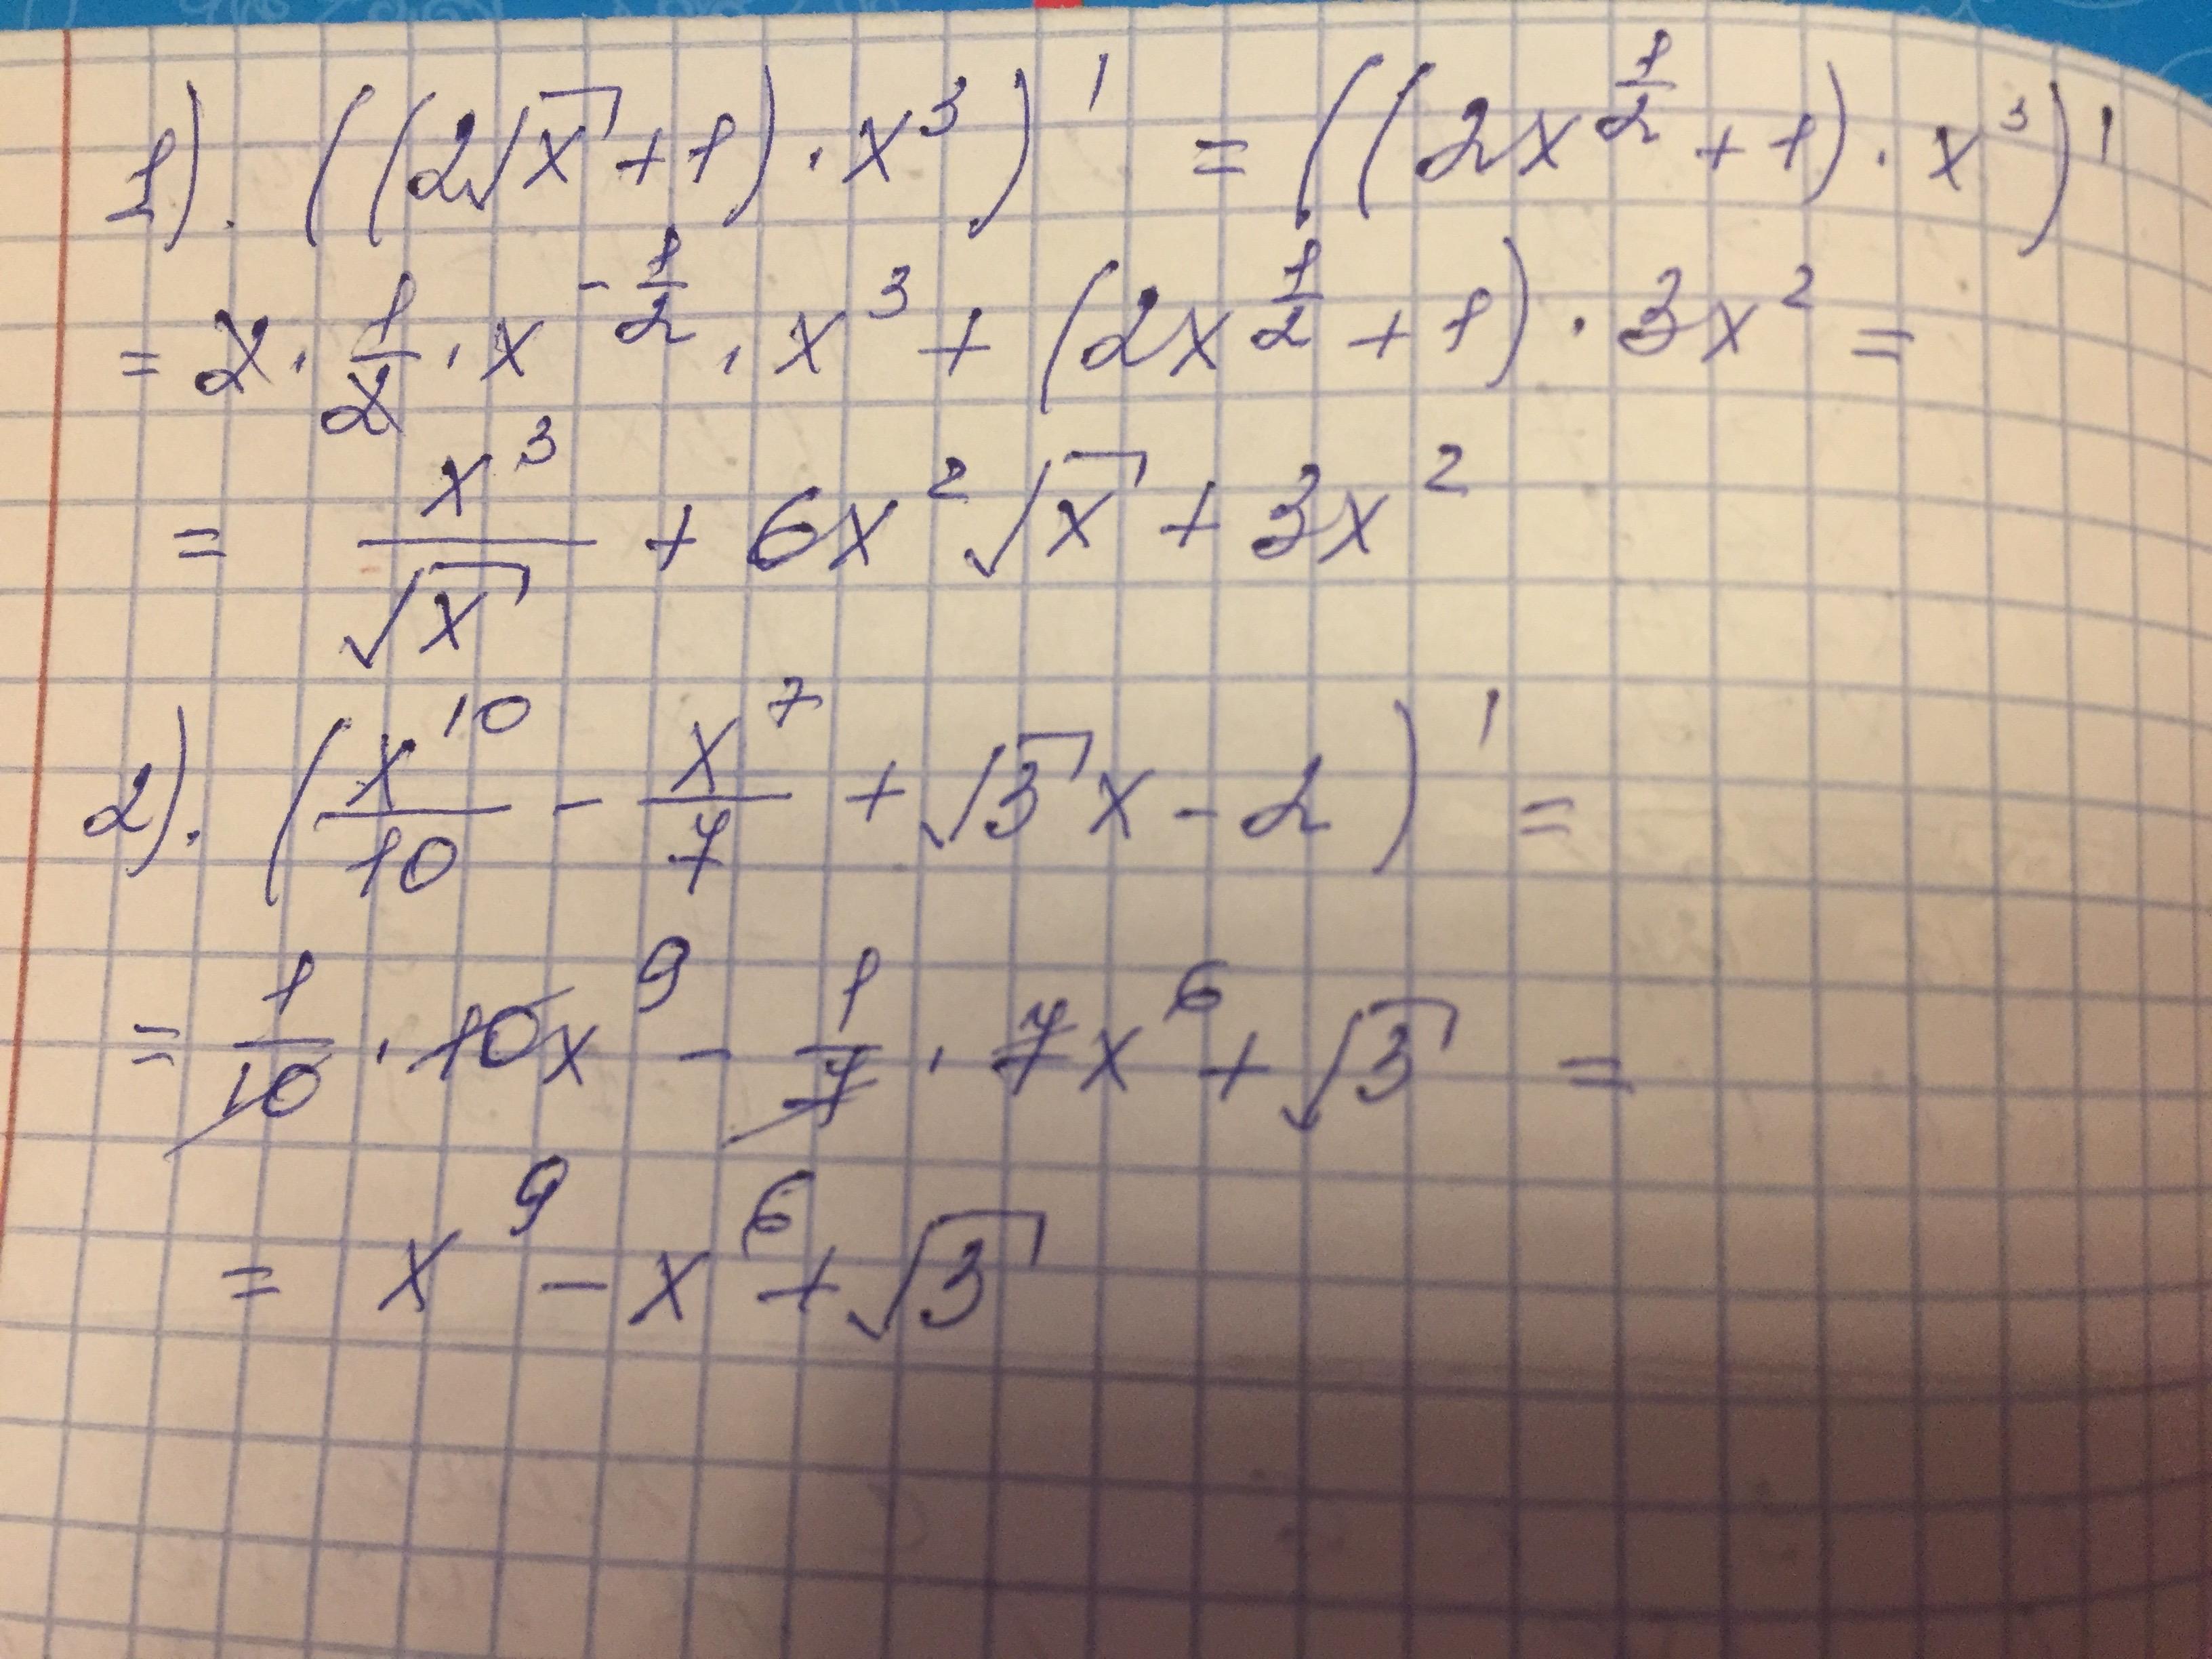 1). ((2√x + 1) · x³)' = ((2x^(1/2) + 1) · x³)'
= 2 · 1/2 · x^(-1/2) · x³ + (2x^(1/2) + 1) · 3x² =
= x³/√x + 6x²√x + 3x²
2). (x¹⁰/10 - x⁷/7 + √3x - 2)' =
= 1/10 · 10x⁹ - 1/7 · 7x⁶ + √3 =
= x⁹ - x⁶ + √3